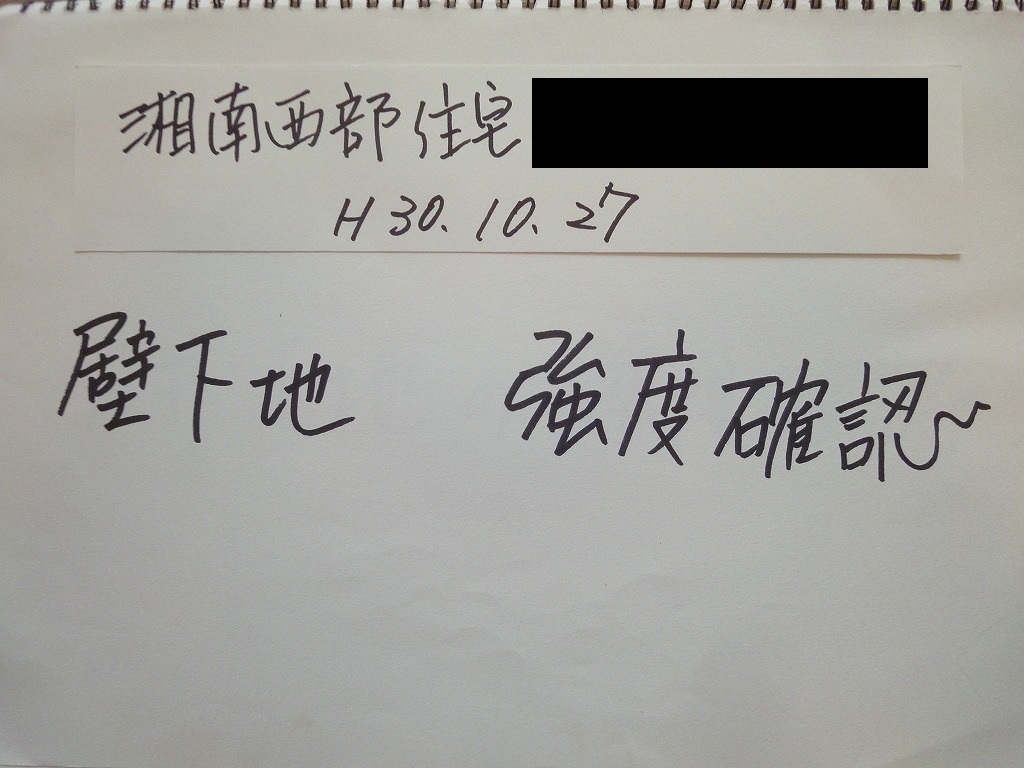 湘南西部住宅
H30.10.27
壁下地 強度確認~